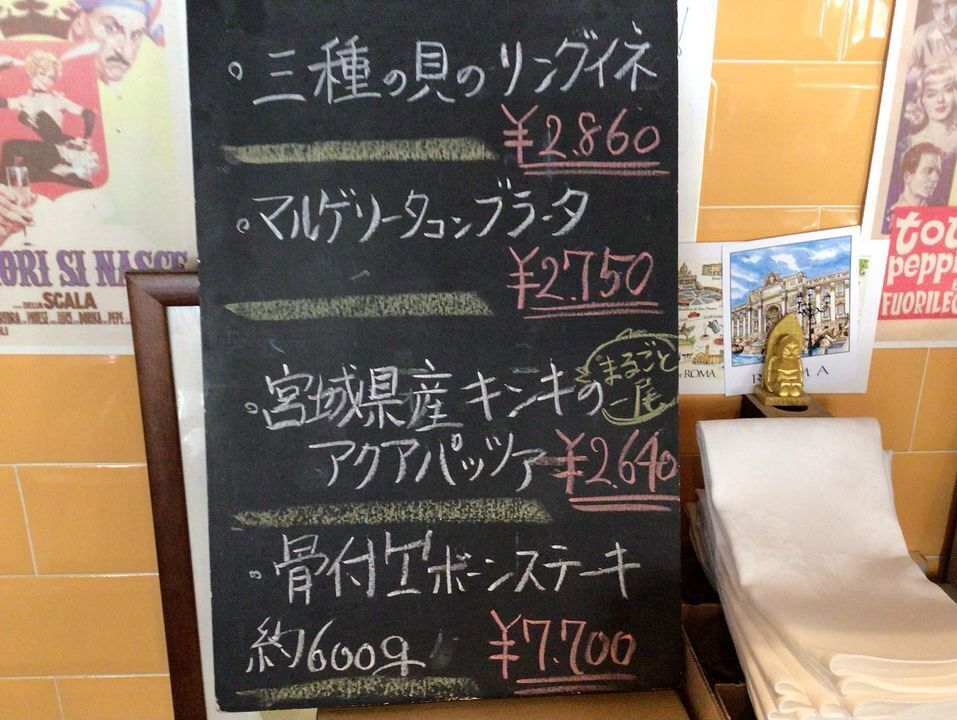 。三種の貝のリングイネ
¥2.860
。マルゲリータコンブラータ
¥2.750
。宮城県産キンキの
まるごと
一尾
アクアパッツァ ¥2.640
。骨付Tボーンステーキ
約600g ¥7.700
ORI SI NASCE
DELLA SCALA
ROMA
ROMA
tot
peppi
FUORILEG